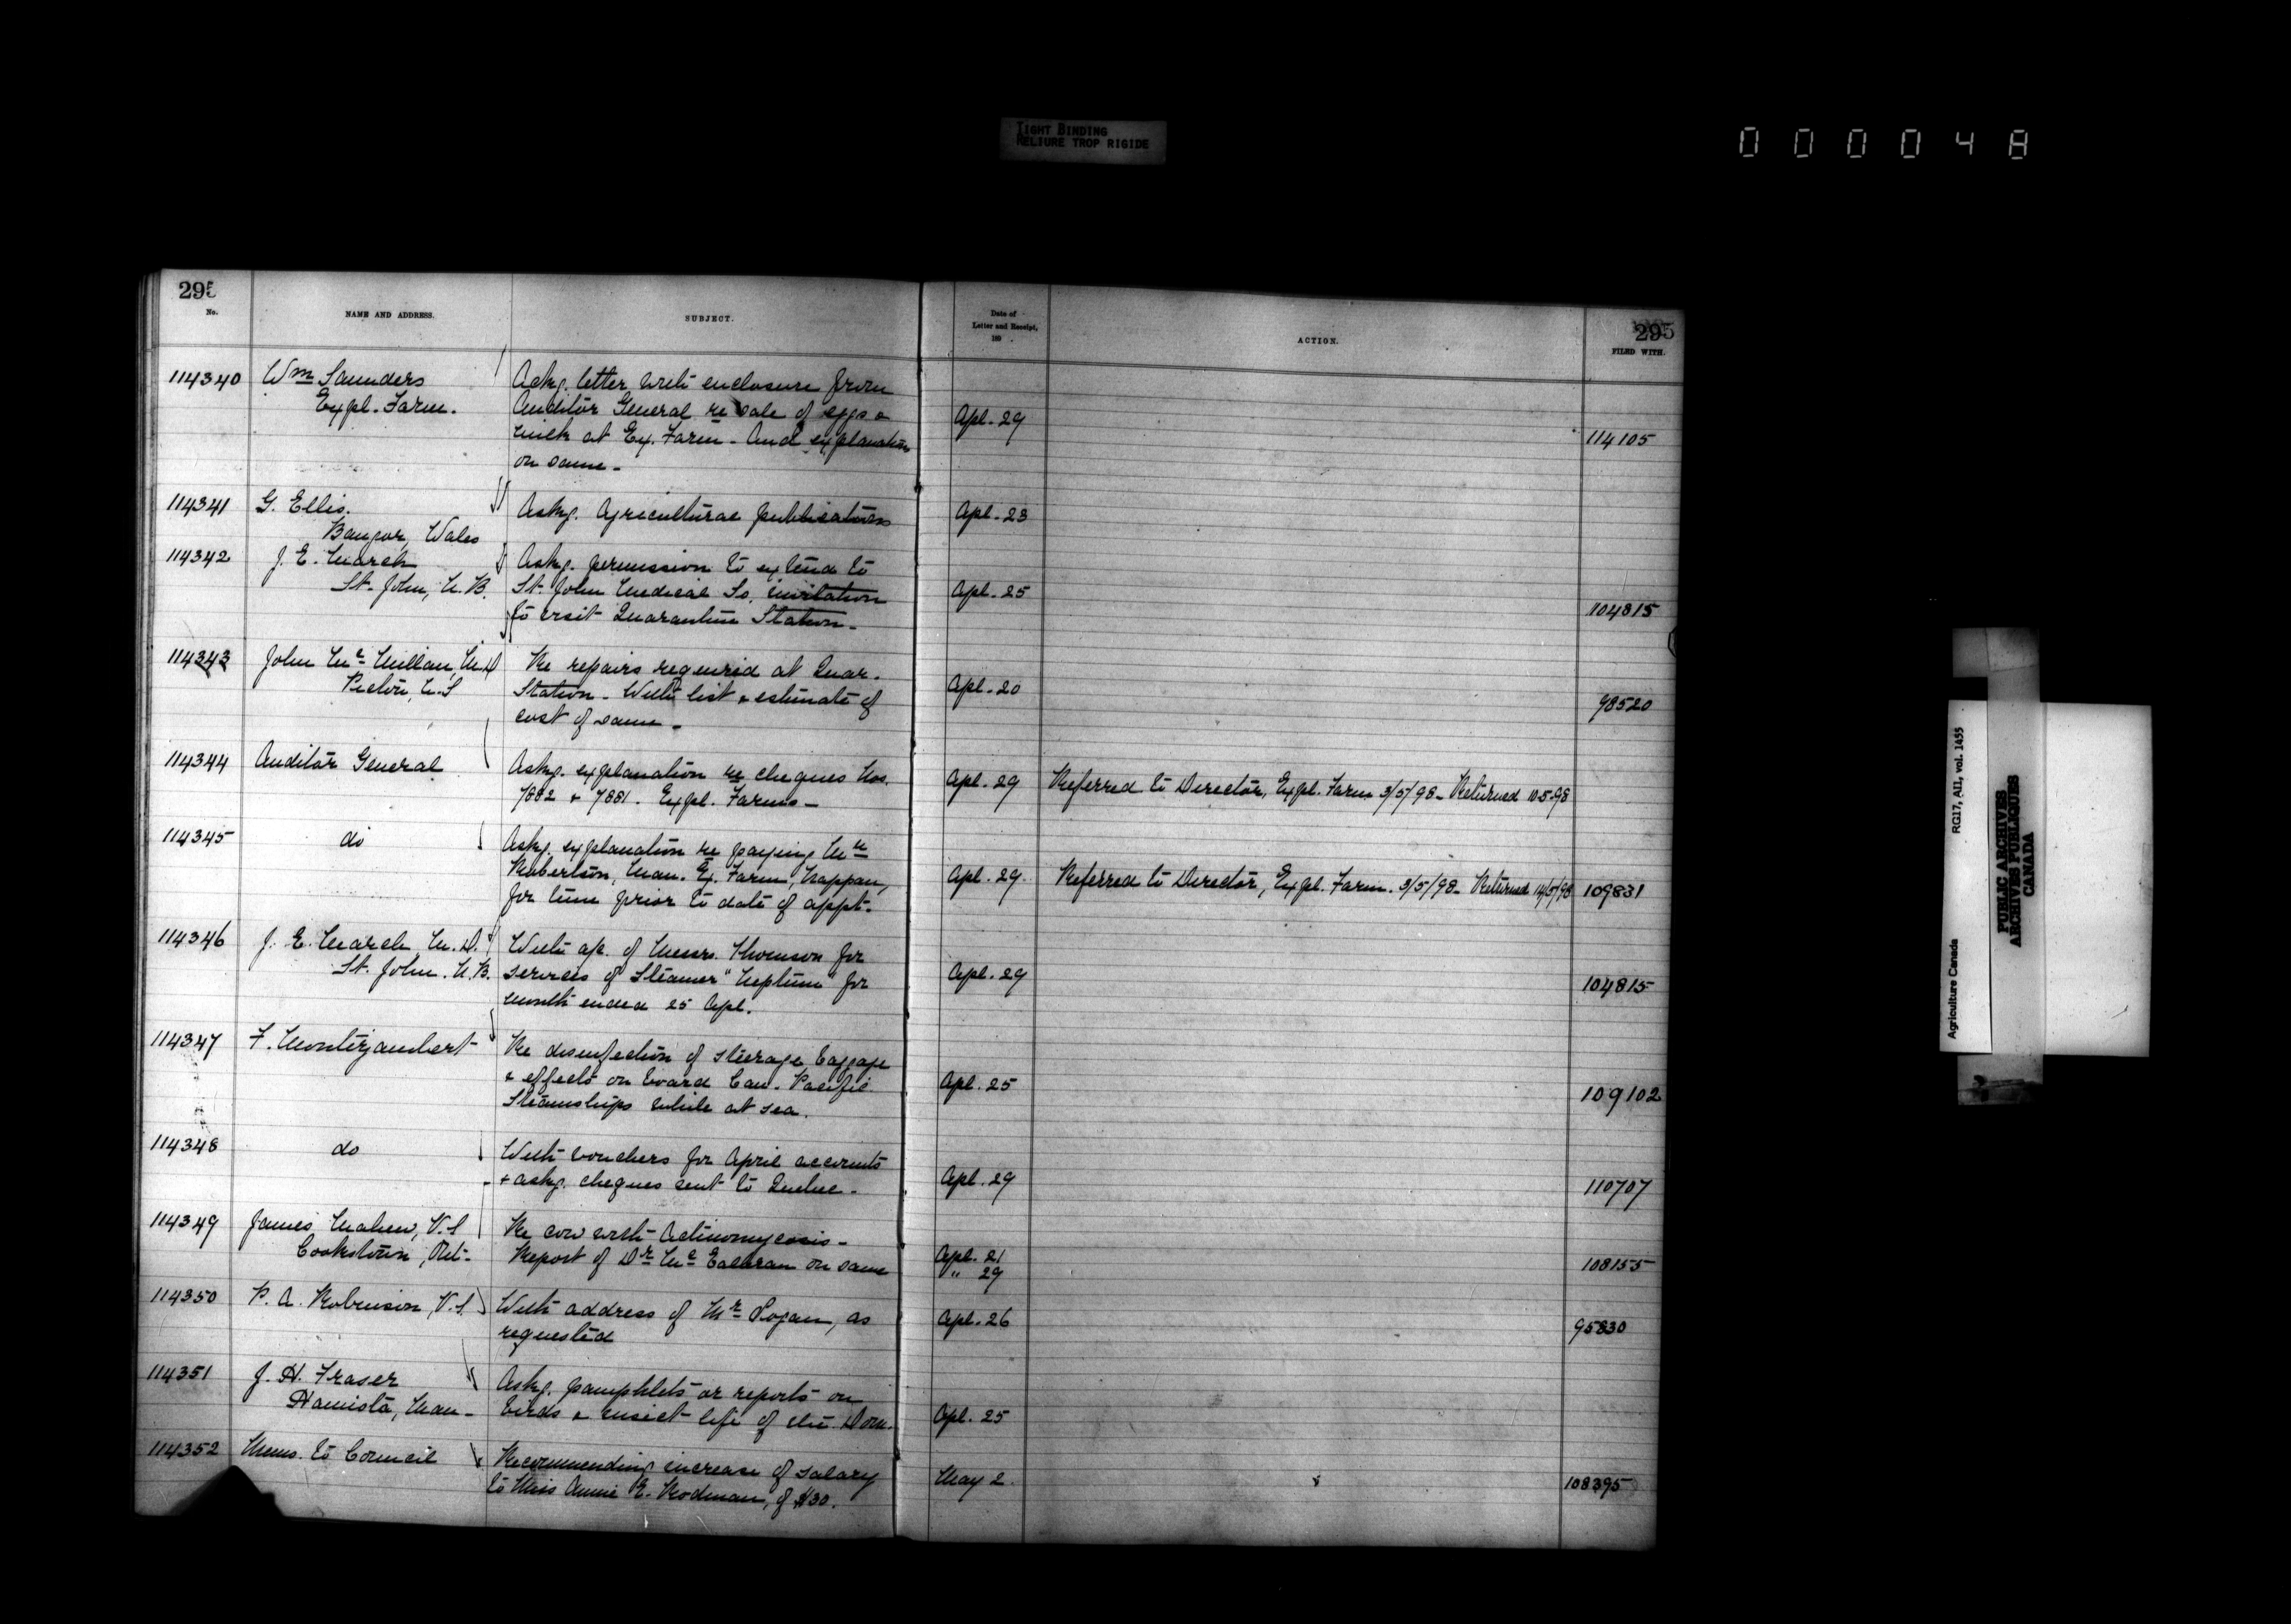 TIGHT BINDING
RELIURE TROP RIGIDE
000048
295
No.
NAME AND ADDRESS.
SUBJECT.
Date of
Letter and Receipt,
189
ACTION.
295
FILED WITH.
114340 Wm Saunders Ackg. letter with enclosure from
Expl. Farm. Auditor General re sale of eggs &
Apl. 29
milk at Ex. Farm - And explanation
114105
on same -
114341 G. Ellis. Askg. Agricultural publications Apl. 23
Bangor, Wales
114342 J. E. March Askg. permission to extend to
St. John, N.B. St. John Medical So. invitation Apl. 25
to visit Quarantine Station - 104815
114343 John McMillan, M.D Re repairs required at Quar.
Pictou, N.S Station - With list & estimate of Apl. 20
cost of same - 98520
114344 Auditor General Askg. explanation re cheques Nos.
7882 & 7881. Expl. Farms - Apl. 29 Referred to Director, Expl. Farm 3/5/98 - Returned 10-5-98
114345 do Askg. explanation re paying Mr
Robertson, Man. Ex. Farm, Nappan, Apl. 29. Referred to Director, Expl. Farm. 3/5/98 - Returned 14/5/98 109831
for time prior to date of appt.
114346 J. E. March M.D. With a/c. of Messrs. Thomson for
St. John. N.B. services of Steamer "Neptune" for Apl. 29
month ended 25 Apl. 104815
114347 F. Montizambert Re disinfection of steerage baggage
& effects on board Can. Pacific Apl. 25
Steamships while at sea. 109102
114348 do With vouchers for April accounts
& askg. cheques sent to Quebec - Apl. 29 110707
114349 James Mahew, V.S Re cow with Actinomycosis -
Cookstown, Ont. Report of Dr McEachran on same Apl. 21
" 29 108155
114350 P. A. Robinson, V.S. With address of Mr Logan, as Apl. 26
requested 95830
114351 J. H. Fraser Askg. pamphlets or reports on
Hamiota, Man - birds & insect life of the Dom. Apl. 25
114352 Memo. to Council Recommending increase of salary
to Miss Annie E. Rodman, of $30. May 2. 108395
Agriculture Canada RG17, AII, vol. 1455
PUBLIC ARCHIVES
ARCHIVES PUBLIQUES
CANADA